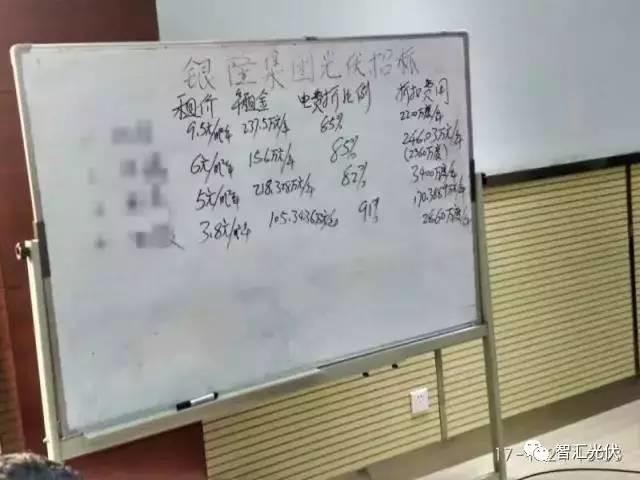 银隆集团光伏招标
租价 年租金 电费折比例 折扣费用
9.5元/㎡年 237.5万元/年 85% 2200万度/年
6元/㎡年 156万元/年 85% 246.03万元/年
(2360万度)
5元/㎡年 218.328万元/年 82% 3400万度/年
3.8元/㎡年 105.3436万元/年 91% 170.3869万元/年
2660万度/年
智汇光伏